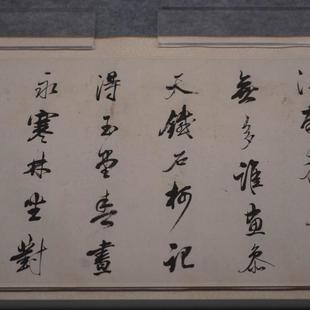 無多誰畫參
天鐵石柯記
得玉堂春晝
永寒林坐對